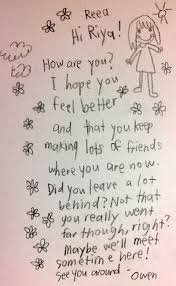 Reed
Hi Riya!
How are you?
I hope you
feel better
and that you keep
making lots of friends
where you are now.
Did you leave a lot
behind? Not that
you really went
far though, right?
Maybe we'll meet
sometime here!
see you around - Owen